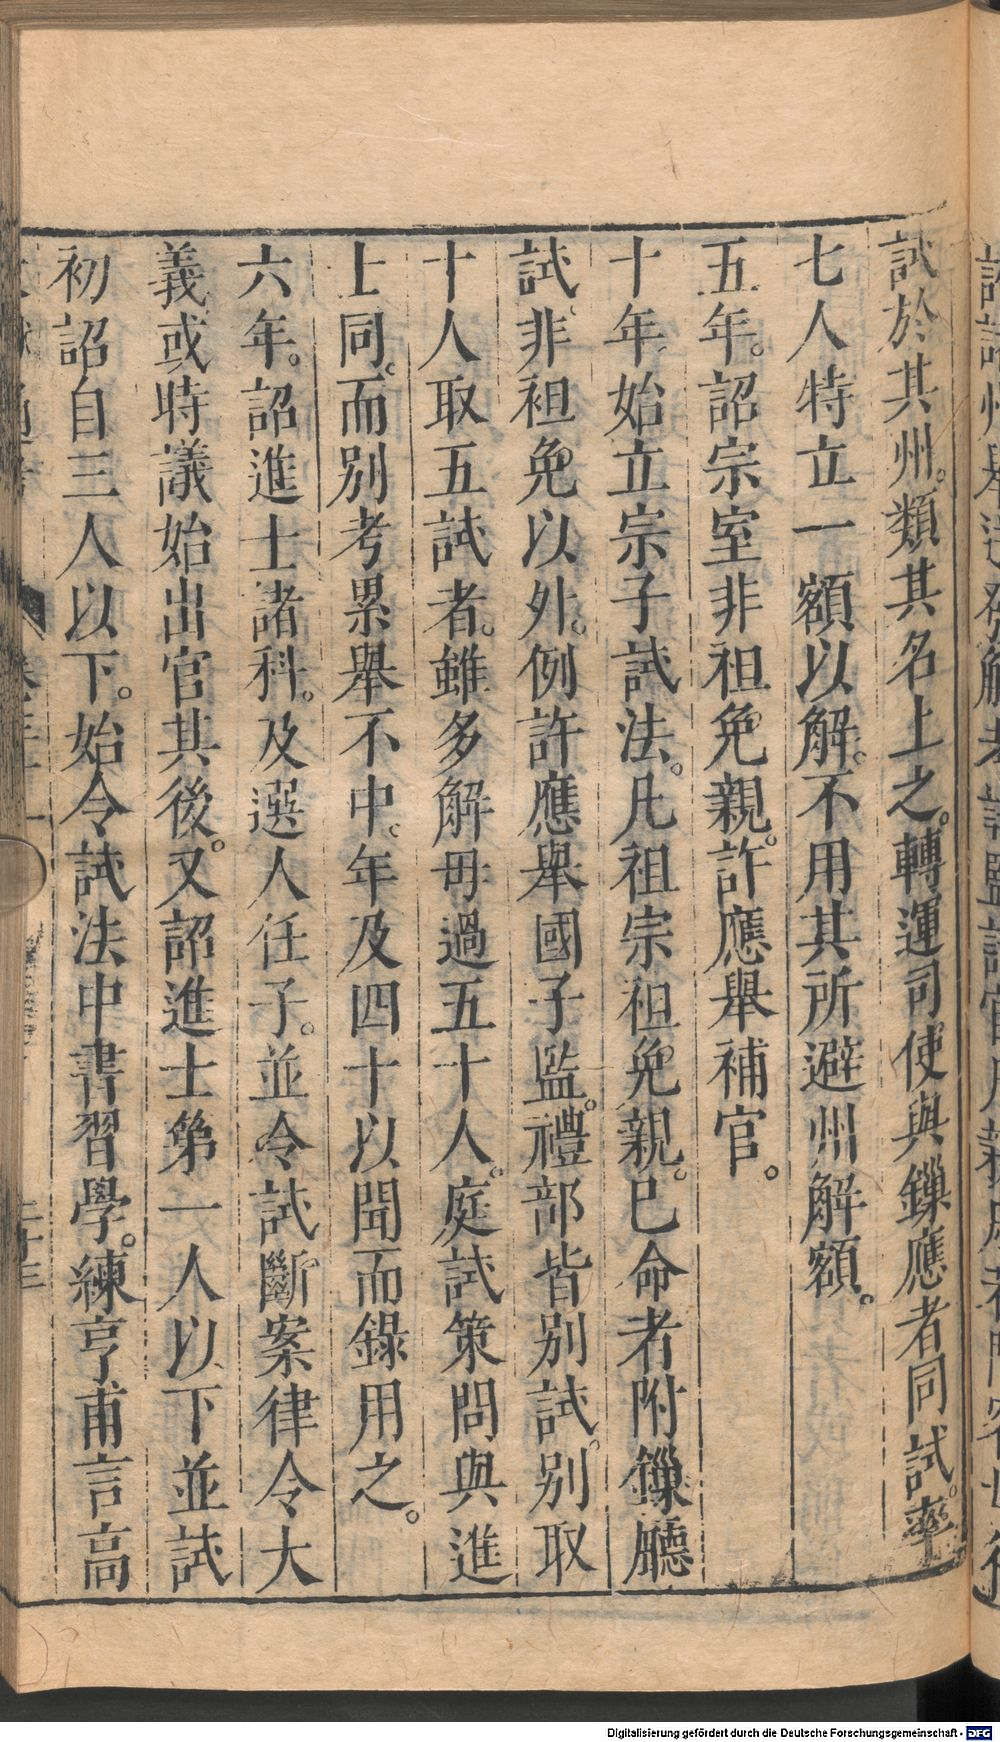 試於其州。類其名上之。轉運司使與鏁應者同試。率
七人特立一額以解。不用其所避州解額。
五年。詔宗室非袒免親。許應舉補官。
十年始立宗子試法。凡祖宗袒免親。已命者附鏁廳
試。非袒免以外。例許應舉國子監。禮部皆別試。別取
十人取五試者。雖多解毋過五十人。庭試策問與進
士同。而別考累舉不中。年及四十以聞而錄用之。
六年。詔進士諸科。及選人任子。並令試斷案律令大
義或時議始出官其後。又詔進士第一人以下並試
初詔自三人以下。始令試法中書習學。練亨甫言高
卷三十一
Digitalisierung gefördert durch die Deutsche Forschungsgemeinschaft - DFG